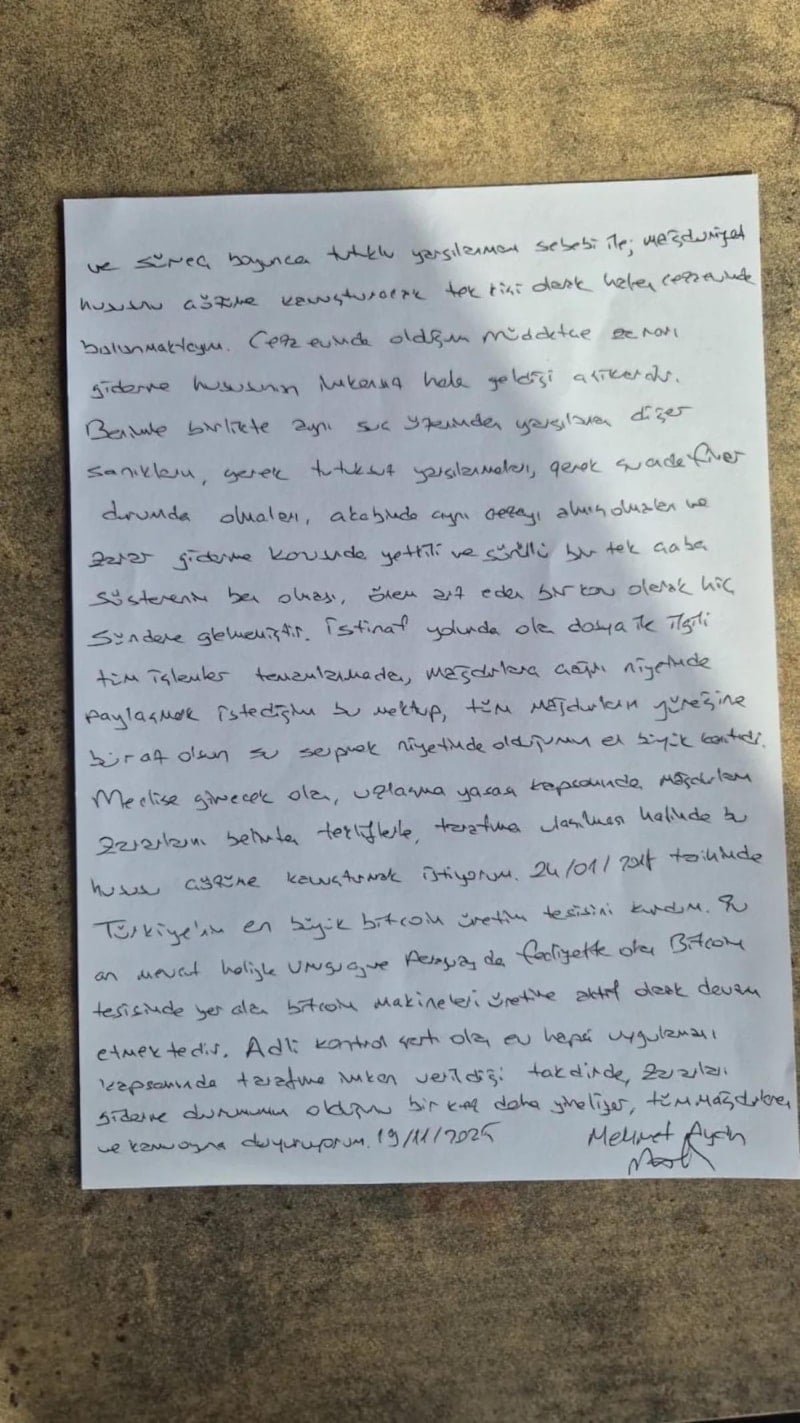 ve süreç boyunca tutuklu yargılanmam sebebi ile; mağduriyet
hususunu çözüme kavuşturacak tek kişi olarak halen cezaevinde
bulunmaktayım. Cezaevinde olduğum müddetçe zararı
giderme hususunun imkansız hale geldiği aşikardır.
Benimle birlikte aynı suç üzerinden yargılanan diğer
sanıkların, gerek tutuksuz yargılanmaları, gerek şu anda firar
durumda olmaları, akabinde aynı cezayı almış olmaları ve
zarar giderme konusunda yetkili ve sürekli bir tek çaba
gösterenin ben olması, önem arz eden bir konu olarak hiç
gündeme gelmemiştir. İstinaf yolunda olan dosya ile ilgili
tüm işlemler tamamlanmadan, mağdurlara çağrı niyetinde
paylaşmak istediğim bu mektup, tüm mağdurların yüreğine
biraz olsun su serpmek niyetinde olduğumun en büyük kanıtıdır.
Meclise girecek olan, uzlaşma yasası kapsamında, mağdurların
zararlarını belirten tekliflerle, tarafıma ulaşılması halinde bu
hususu çözüme kavuşturmak istiyorum. 24/01/2018 tarihinde
Türkiye'nin en büyük bitcoin üretim tesisini kurdum. Şu
an mevcut haliyle Uruguay ve Paraguay da faaliyette olan Bitcoin
tesisinde yer alan bitcoin makineleri üretime aktif olarak devam
etmektedir. Adli kontrol şartı olan ev hapsi uygulaması
kapsamında tarafıma imkan verildiği takdirde, zararları
giderme durumumun olduğunu bir kez daha yineliyor, tüm mağdurlara
ve kamuoyuna duyuruyorum. 19/11/2025
Mehmet Aydın